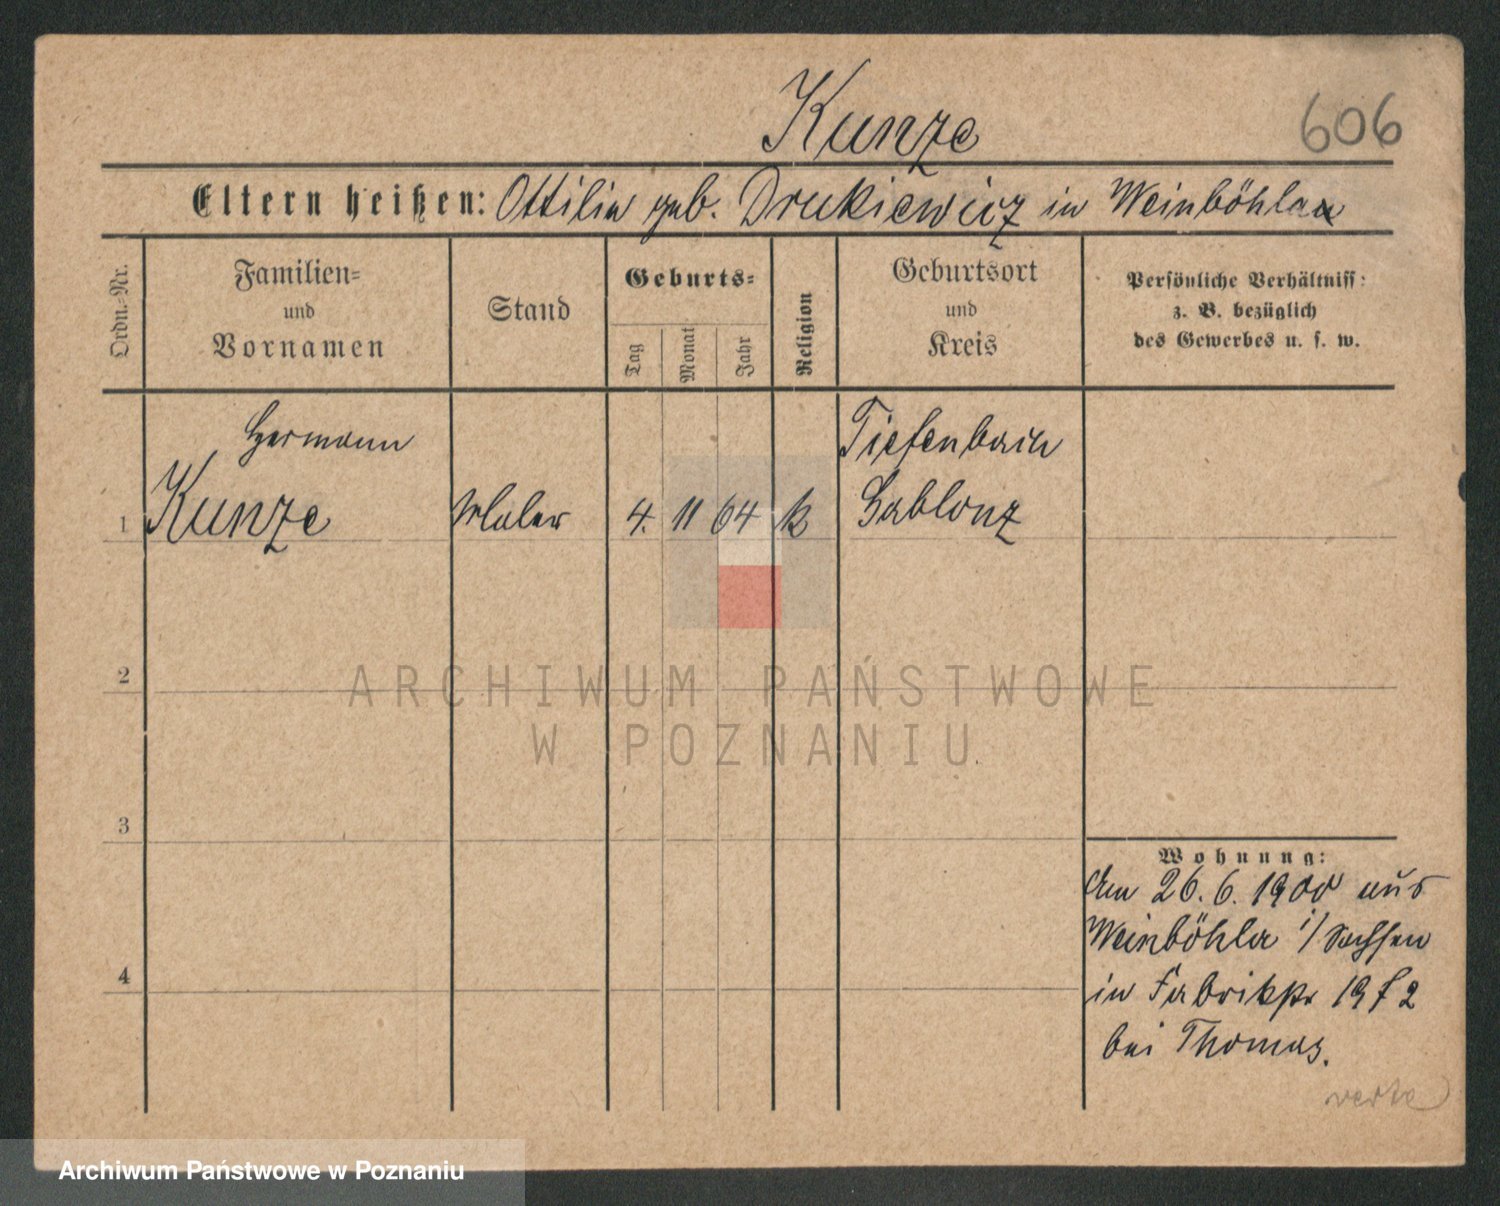 Kunze
606
Eltern heißen: Ottilie geb. Drukiewicz in Weinböhla
Ordn.-Nr.
Familien-
und
Vornamen
Stand
Geburts-
Tag
Monat
Jahr
Religion
Geburtsort
und
Kreis
Persönliche Verhältniss:
z. B. bezüglich
des Gewerbes u. s. w.
Hermann
Tiefenbach
1 Kunze Maler 4. 11 64 k Gablonz
2
ARCHIWUM PAŃSTWOWE
W POZNANIU
3
4
Wohnung:
Am 26.6.1900 aus
Weinböhla i/Sachsen
in Fabrikstr 19 f 2
bei Thomas.
verte
Archiwum Państwowe w Poznaniu